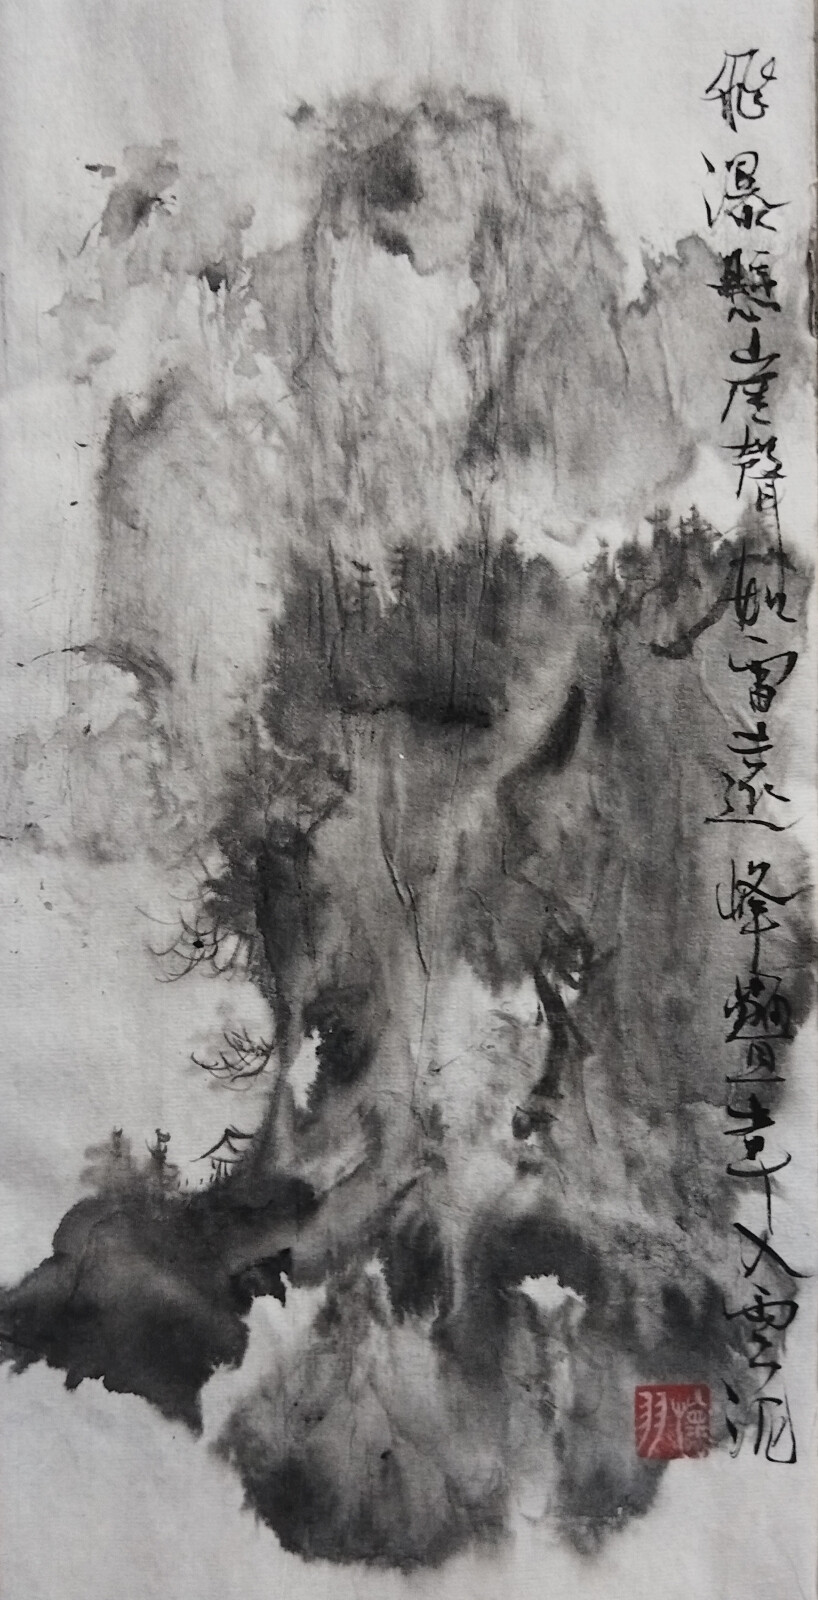 飛瀑懸山崖聲如雷遠峰疊嶂入雲泥